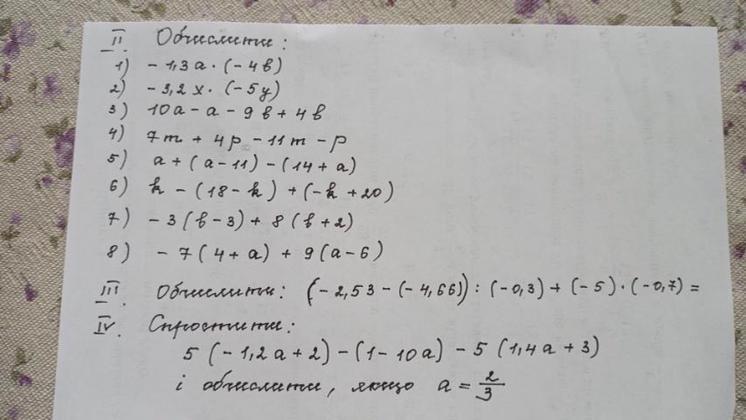 II Обчислити:
1) - 1,3a · (- 4b)
2) - 3,2x · (- 5y)
3) 10a - a - 9b + 4b
4) 7m + 4p - 11m - p
5) a + (a - 11) - (14 + a)
6) k - (18 - k) + (- k + 20)
7) - 3(b - 3) + 8(b + 2)
8) - 7(4 + a) + 9(a - 6)
III Обчислити: (- 2,53 - (- 4,66)) : (- 0,3) + (- 5) · (- 0,7) =
IV. Спростити:
5(- 1,2a + 2) - (1 - 10a) - 5(1,4a + 3)
і обчислити, якщо a = 2/3